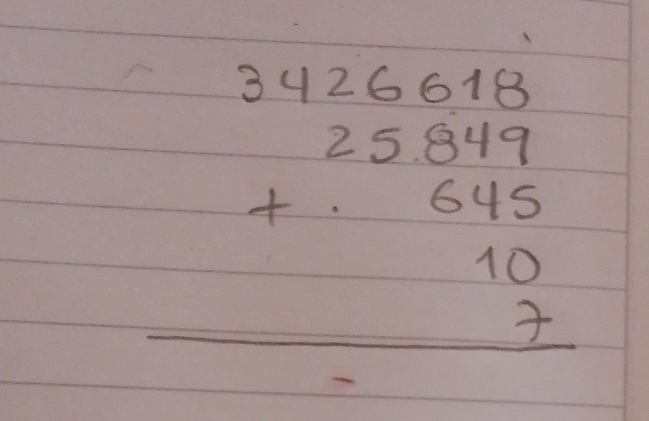 3426618
25.849
+ . 645
10
7